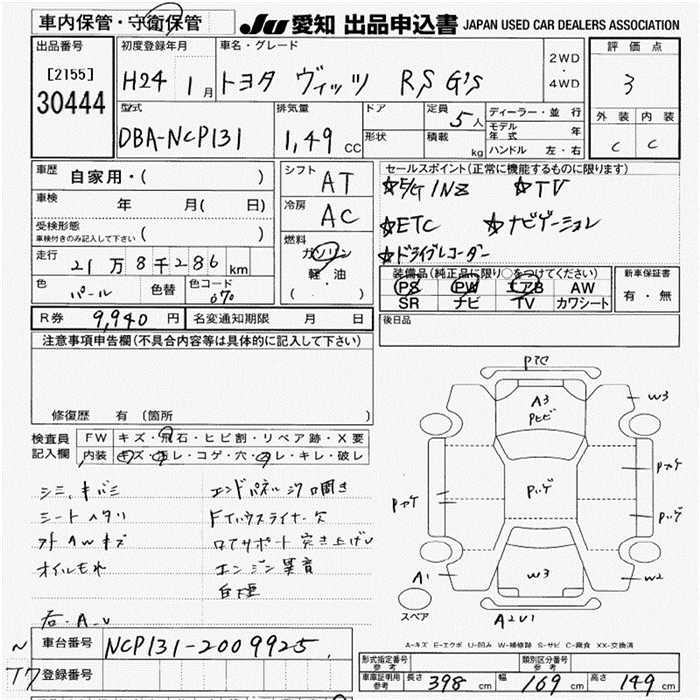 車内保管・守衛保管
JU 愛知 出品申込書 JAPAN USED CAR DEALERS ASSOCIATION
出品番号 [2155] 30444
初度登録年月 H24 1月
車名・グレード トヨタ ヴィッツ RS G's
2WD・4WD
評価点 3
外装 内装
C C
型式 DBA-NCP131
排気量 1,49 CC
ドア
形状
定員 5人
積載 kg
ディーラー・並行
モデル年式 年
ハンドル 左・右
車歴 自家用・( )
車検 年 月( 日)
受検形態
車検付きのみ記入して下さい ( )
走行 21万8千286km
色 パール 色替 色コード 070
シフト AT
冷房 AC
燃料 ガソリン
軽・油
( ・ )
セールスポイント(正常に機能するものに限ります)
☆E/G 1NZ ☆TV
☆ETC ☆ナビゲーション
☆ドライブレコーダー
装備品(純正品に限り○をつけてください)
PS PW エアB AW
SR ナビ TV カワシート
新車保証書
有・無
R券 9,940円 名変通知期限 月 日
後日品
注意事項申告欄(不具合内容等は具体的に記入して下さい)
修復歴 有 (箇所 )
検査員記入欄
FW キズ・飛石・ヒビ割・リペア跡・X要
内装 キズ・コゲ・穴・キレ・破レ
シミ、キバミ
シートヘタリ
オイルモレ
エンドパネル
ロアサポート突き上げ
エンジン異音
右・A-U
車台番号 NCP131-2009925
登録番号
A3
Pヒビ
W3
Pハゲ
W3
W2
A1
A2U1
スペア
A-キズ E-エクボ U-凹み W-補修跡 S-サビ C-腐食 XX-交換済
形式指定番号 参考
類別区分番号 参考
車庫証明用 参考 長さ 398 cm 幅 169 cm 高さ 149 cm